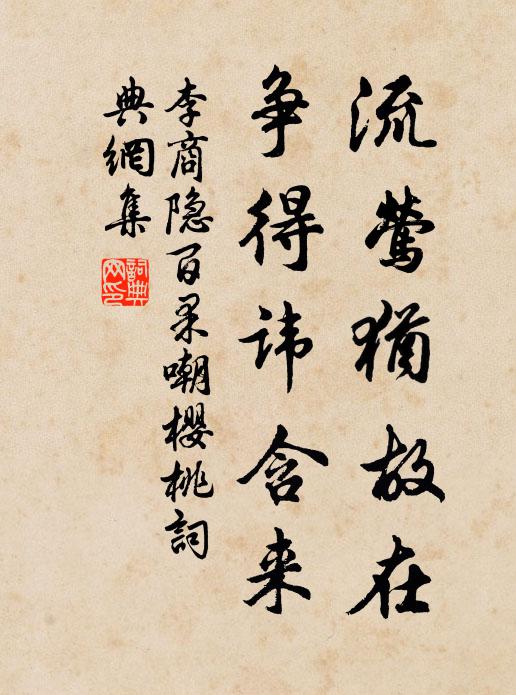 流莺犹故在
争得讳含来
李商隐百果嘲樱桃詞
典網集
詞典网印